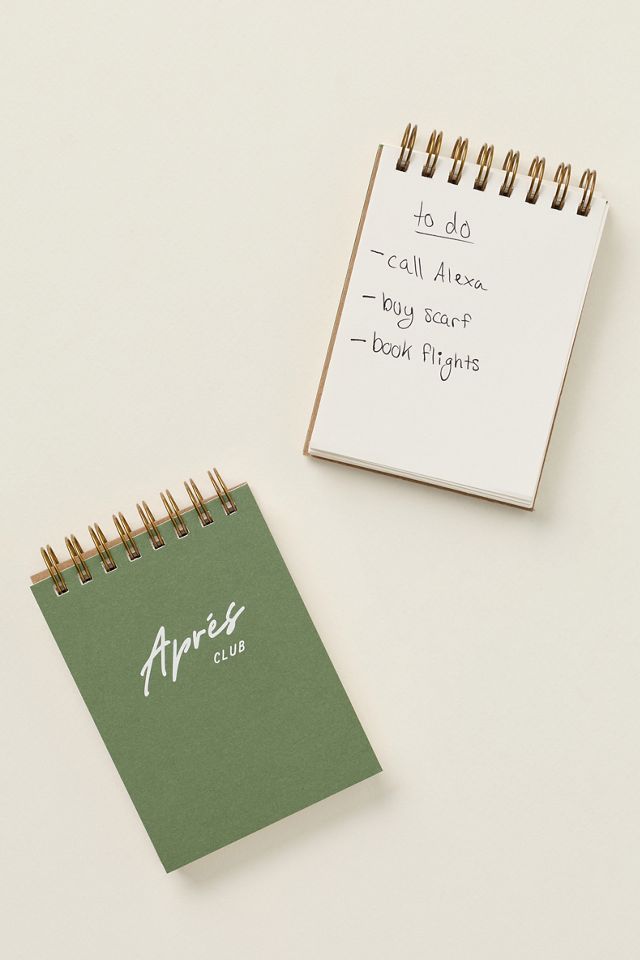 to do
- call Alexa
- buy scarf
- book flights
Aprés
CLUB